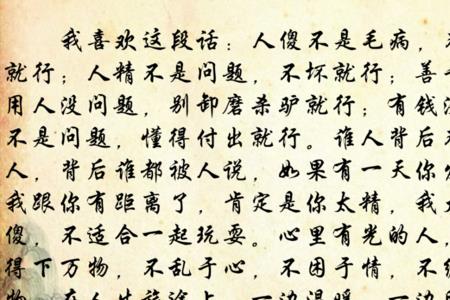 我喜欢这段话：人傻不是毛病，
就行；人精不是问题，不坏就行；善
用人没问题，别卸磨杀驴就行；有钱没
不是问题，懂得付出就行。谁人背后
人，背后谁都被人说，如果有一天你
我跟你有距离了，肯定是你太精，我
傻，不适合一起玩耍。心里有光的人，
得下万物，不乱于心，不困于情，不